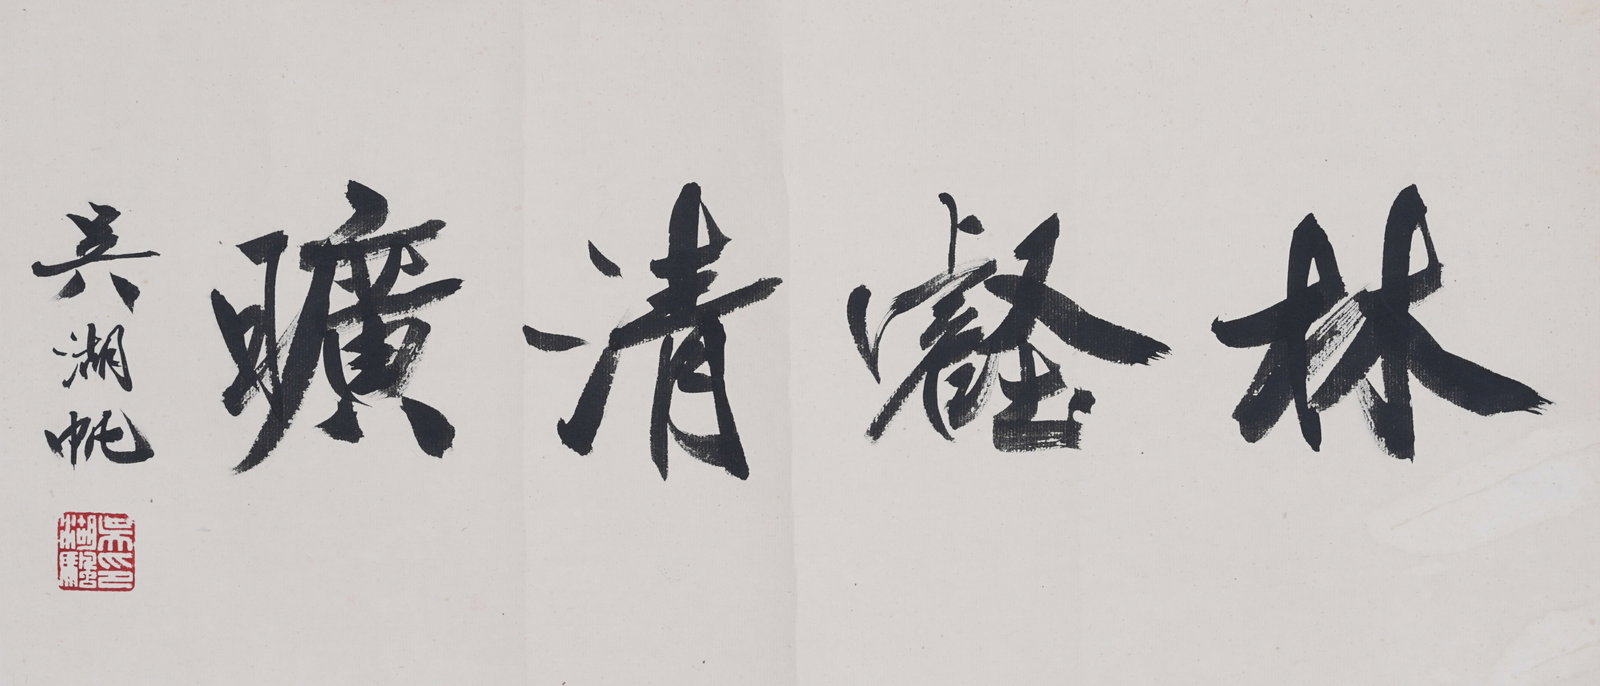 林壑清曠
吳湖帆
吳湖颿印